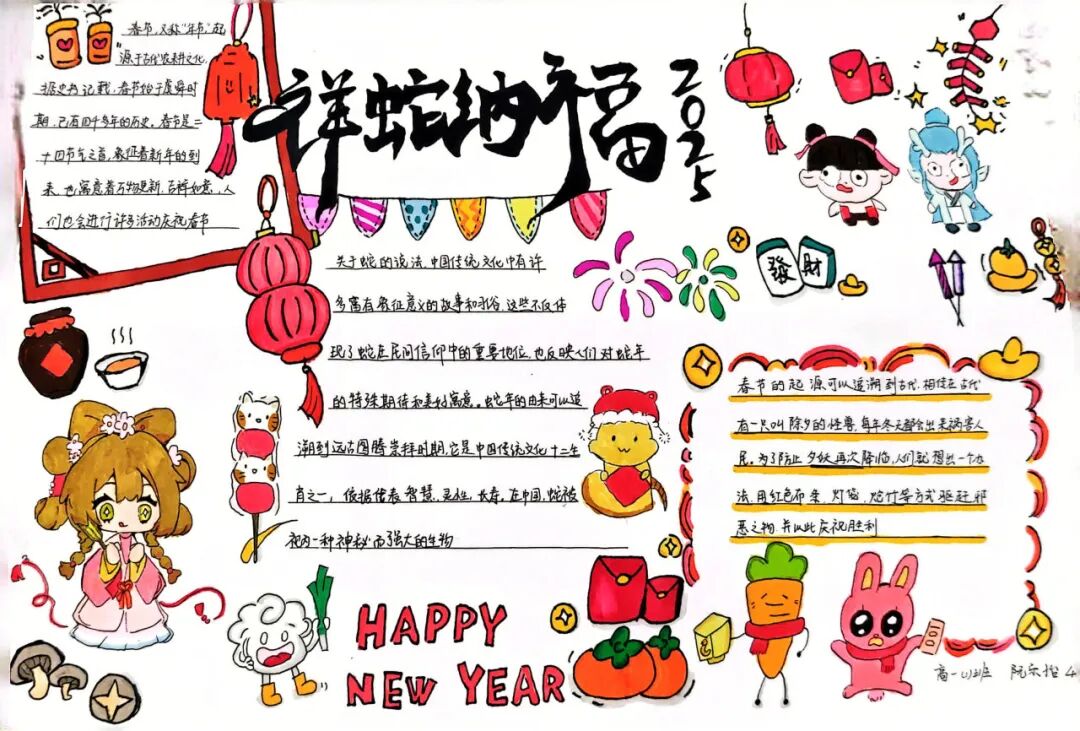 祥蛇纳福
2025
春节，又称"年节"，起
源于古代农耕文化，
据史书记载，春节始于虞舜时
期，已有四千多年的历史。春节是二
十四节气之首，象征着新年的到
来，也寓意着万物更新、吉祥如意，人
们也会进行许多活动庆祝春节
关于蛇的说法，中国传统文化中有许
多富有象征意义的故事和习俗，这些不仅体
现了蛇在民间信仰中的重要地位，也反映人们对蛇年
的特殊期待和美好寓意。蛇年的由来可以追
溯到远古图腾崇拜时期，它是中国传统文化十二生
肖之一，代表智慧、灵性、长寿，在中国，蛇被
视为一种神秘而强大的生物
發
財
春节的起源可以追溯到古代，相传在古代
有一只叫除夕的怪兽，每年冬天都会出来祸害人
民，为了防止夕妖再次降临，人们就想出一个办
法，用红色布条、灯笼、炮竹等方式驱赶邪
恶之物，并以此庆祝胜利
HAPPY
NEW YEAR
高一(1)班 阮